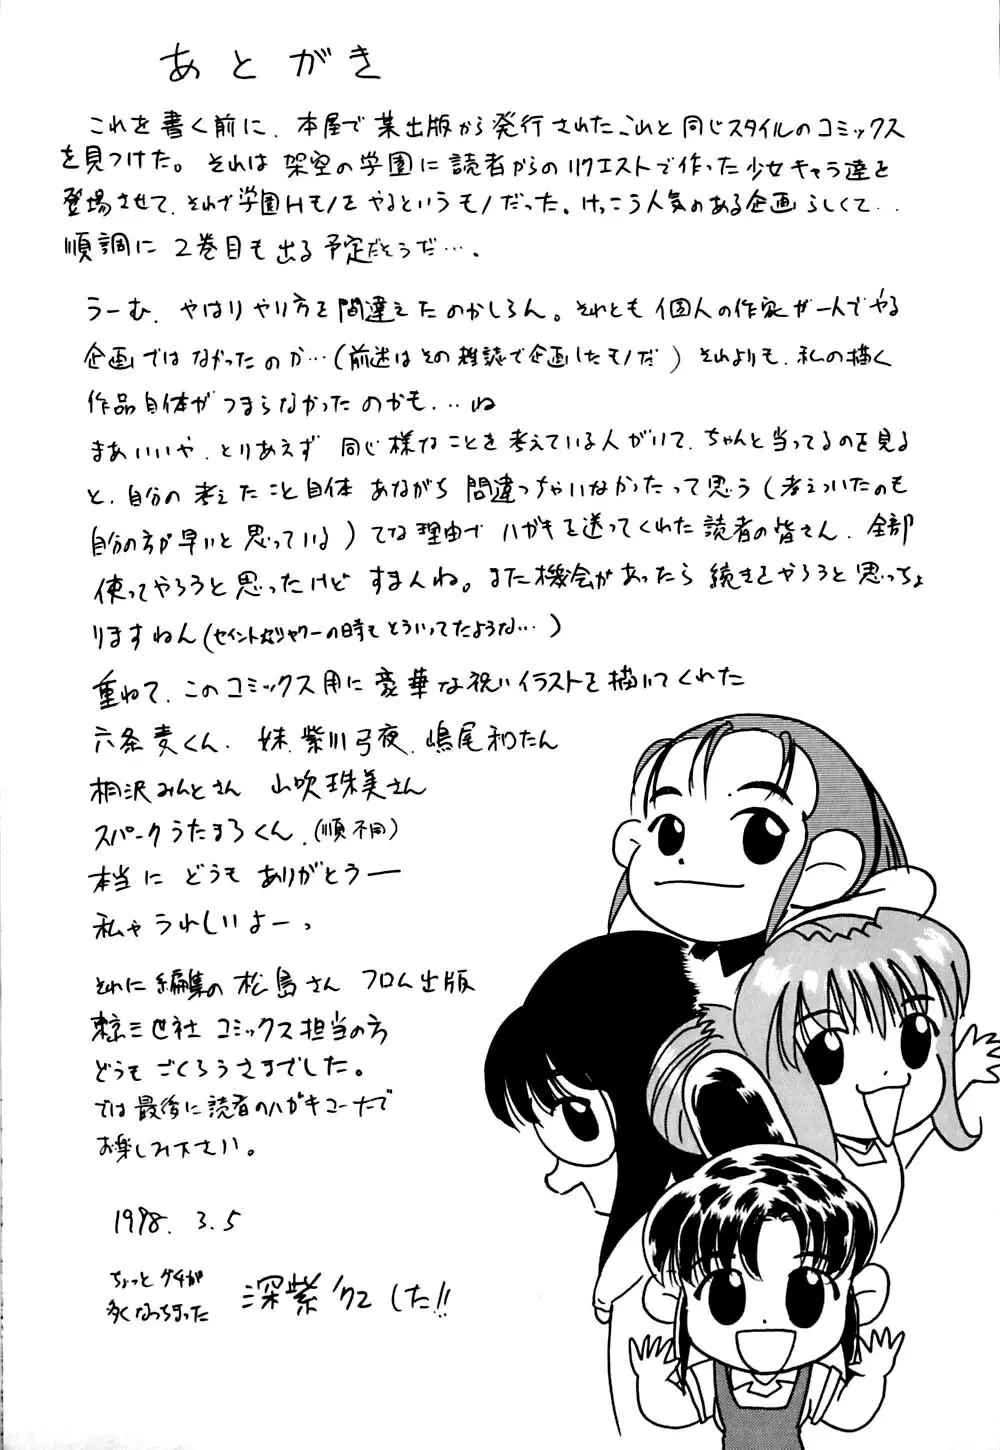 あとがき
これを書く前に、本屋で某出版から発行されたこれと同じスタイルのコミックス
を見つけた。それは架空の学園に読者からのリクエストで作った少女キャラ達を
登場させて、それで学園Hモノをやるというモノだった。けっこう人気のある企画らしくて‥
順調に2巻目も出る予定だそうだ…。
うーむ、やはりやり方を間違えたのかしらん。それとも個人の作家が一人でやる
企画ではなかったのか…(前述はその雑誌で企画したモノだ)それよりも、私の描く
作品自体がつまらなかったのかも…ね
まあいいや、とりあえず同じ様なことを考えている人がいて、ちゃんと当ってるのを見る
と、自分の考えたこと自体あながち間違っちゃいなかったって思う(考えついたのも
自分の方が早いと思っている)てな理由でハガキを送ってくれた読者の皆さん、全部
使ってやろうと思ったけどすまんね。また機会があったら続きをやろうと思っちょ
りますねん(セイント女ジャワーの時もそういってたような…)
重ねて、このコミックス用に豪華な祝いイラストを描いてくれた
六条麦くん、妹、紫川弓夜、嶋尾和たん
相沢みんとさん 山吹珠美さん
スパークうたまろくん、(順不同)
本当にどうもありがとうー
私ゃうれしいよーっ
それに編集の松島さん フロム出版
東京三世社 コミックス担当の方
どうもごくろうさまでした。
では最後に読者のハガキコーナーで
お楽しみ下さい。
1998. 3.5
ちょっとグチが
多くなっちまった
深紫 でした!!